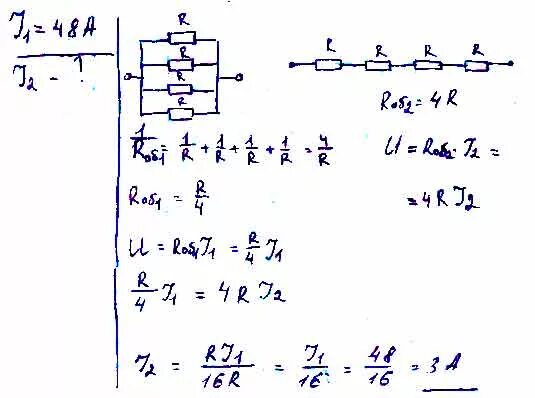 I₁ = 48 A
I₂ - ?
R
R
R
R
R R R R
Rоб₂ = 4R
1/Rоб₁ = 1/R + 1/R + 1/R + 1/R = 4/R
U = Rоб₂ · I₂ =
= 4R I₂
Rоб₁ = R/4
U = Rоб₁ I₁ = R/4 I₁
R/4 I₁ = 4R I₂
I₂ = RI₁/16R = I₁/16 = 48/16 = 3 A